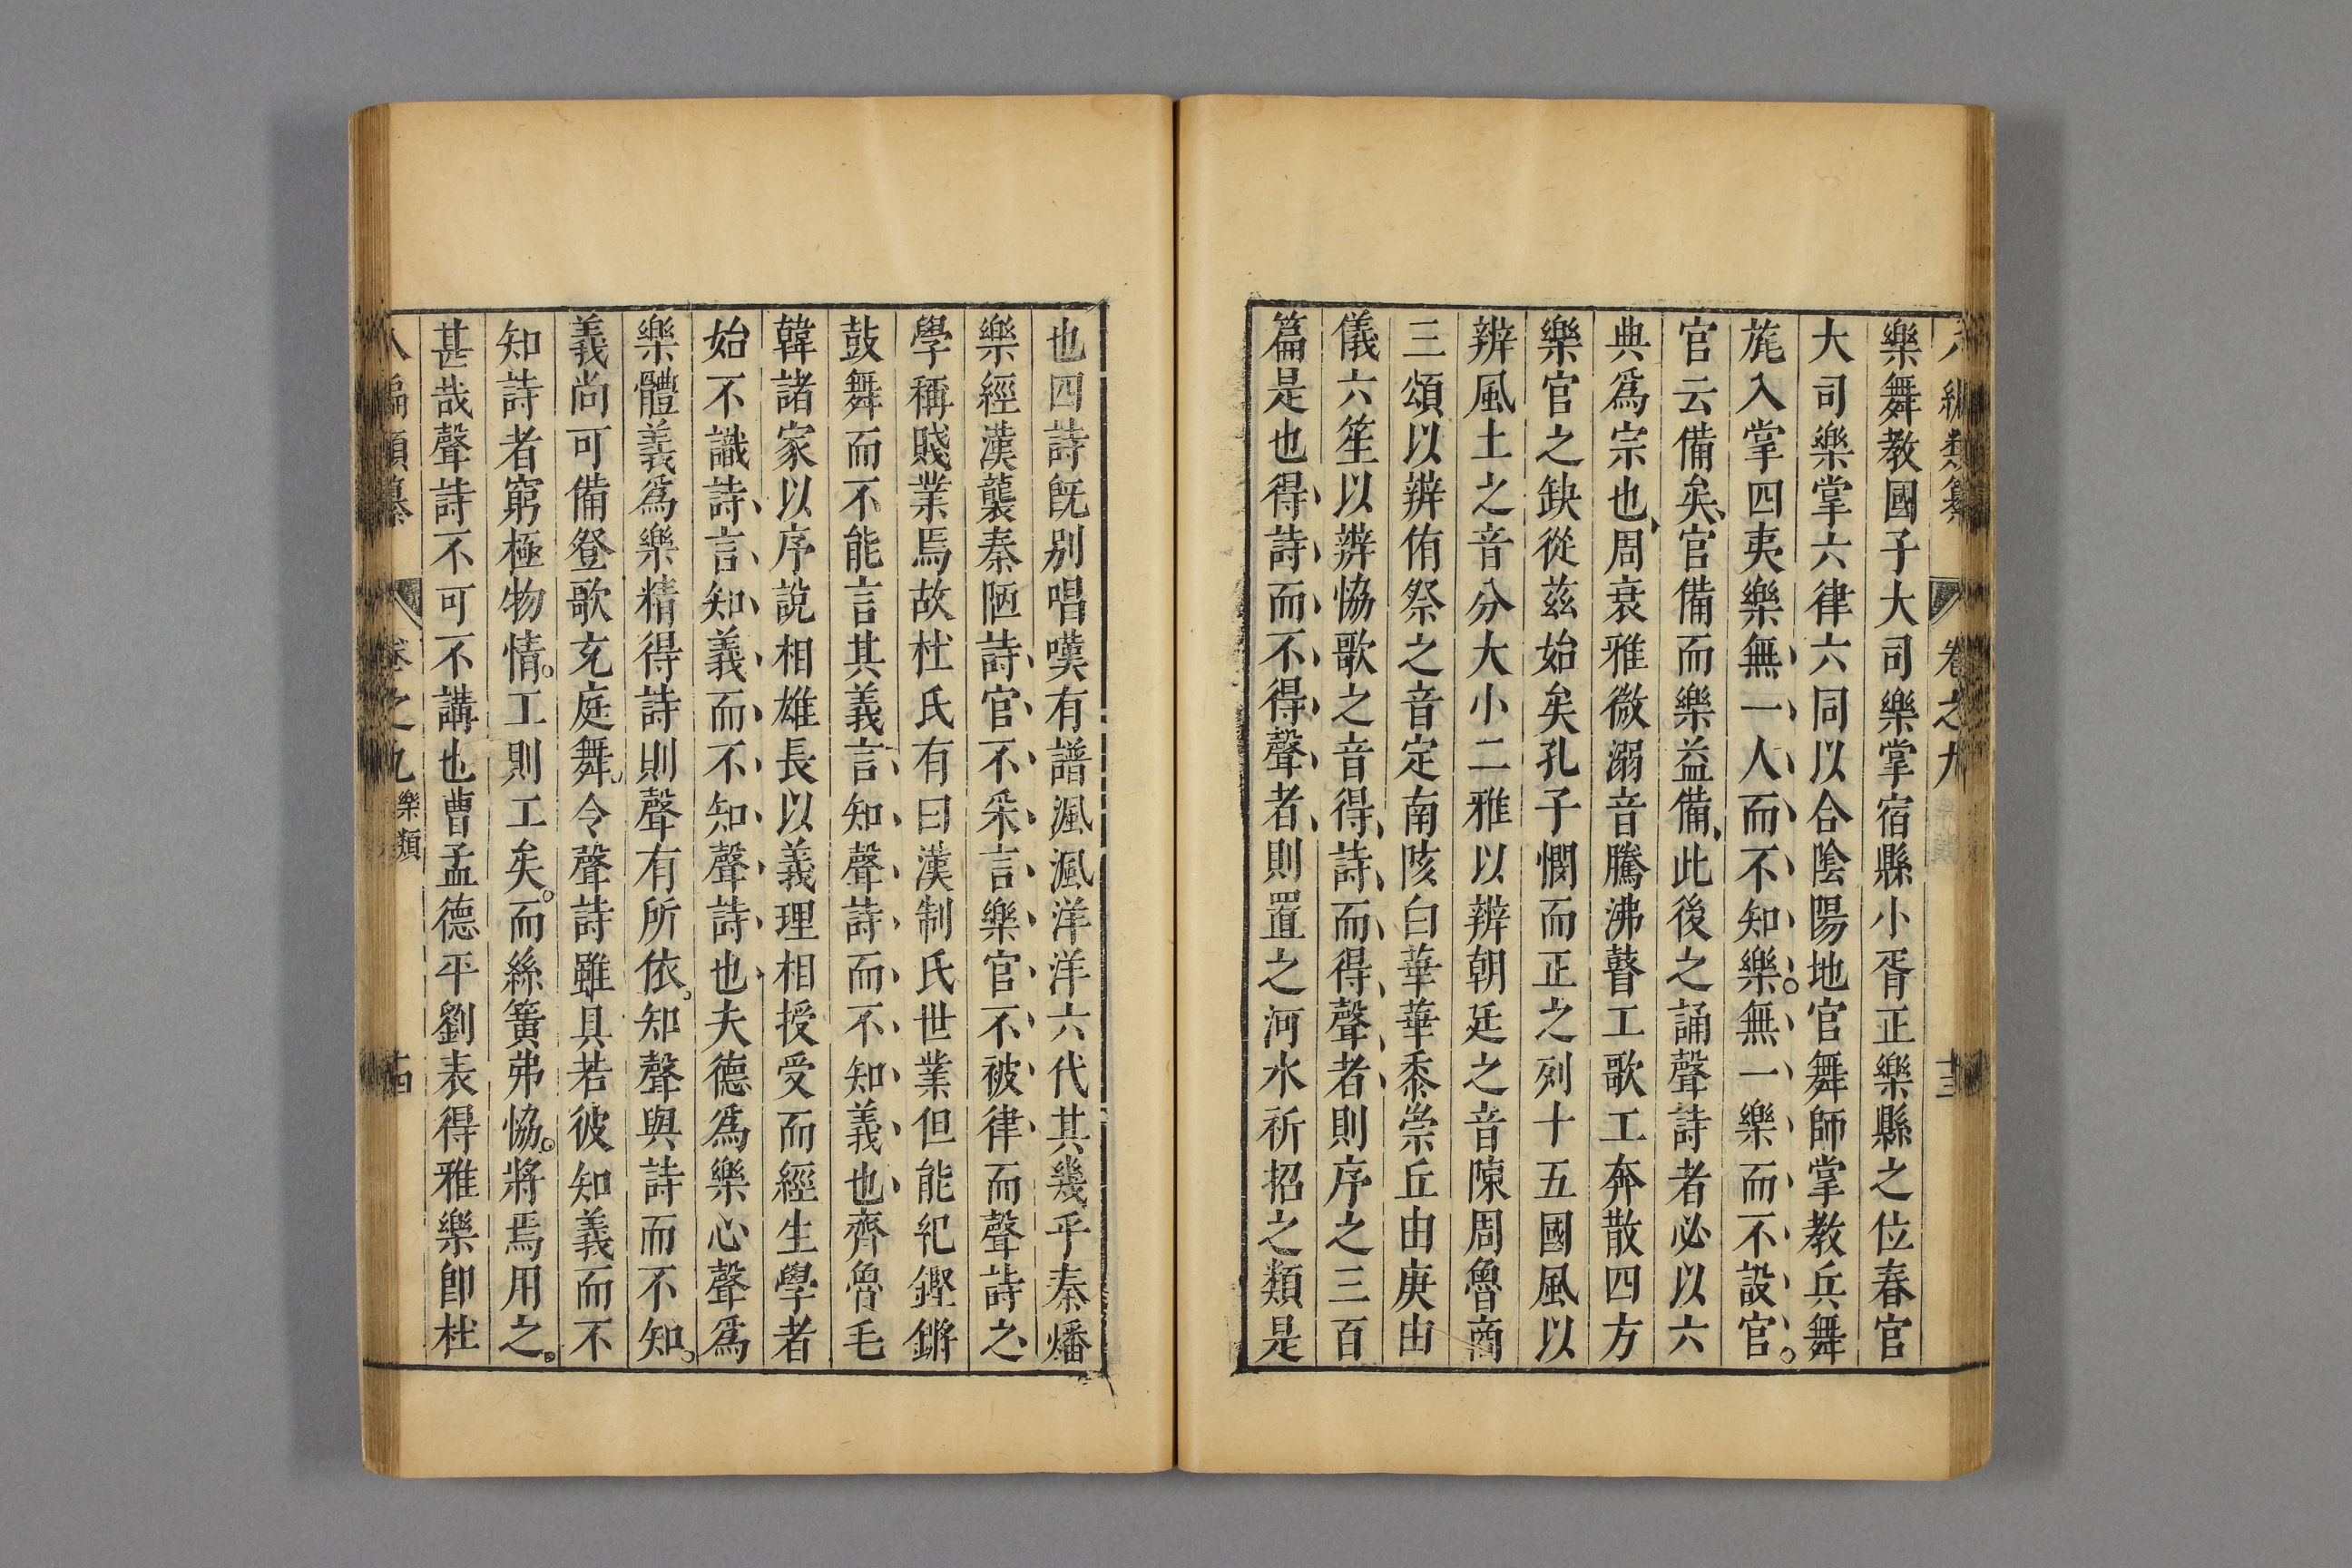 八編類纂 卷之九 十三
樂舞教國子大司樂掌宿縣小胥正樂縣之位春官
大司樂掌六律六同以合陰陽地官舞師掌教兵舞
旄入掌四夷樂無一人而不知樂無一樂而不設官
官云備矣官備而樂益備此後之誦聲詩者必以六
典爲宗也周衰雅微溺音騰沸瞽工歌工奔散四方
樂官之缺從茲始矣孔子憫而正之列十五國風以
辨風土之音分大小二雅以辨朝廷之音陳周魯商
三頌以辨侑祭之音定南陔白華華黍崇丘由庚由
儀六笙以辨恊歌之音得詩而得聲者則序之三百
篇是也得詩而不得聲者則置之河水祈招之類是
也四詩旣别唱嘆有譜渢渢洋洋六代其幾乎秦燔
樂經漢襲秦陋詩官不采言樂官不被律而聲詩之
學稱賤業焉故杜氏有曰漢制氏世業但能紀鏗鏘
鼓舞而不能言其義言知聲詩而不知義也齊魯毛
韓諸家以序說相雄長以義理相授受而經生學者
始不識詩言知義而不知聲詩也夫德爲樂心聲爲
樂體義爲樂精得詩則聲有所依知聲與詩而不知
義尚可備登歌充庭舞令聲詩雖具若彼知義而不
知詩者窮極物情工則工矣而絲簧弗恊將焉用之
甚哉聲詩不可不講也曹孟德平劉表得雅樂卽杜
八編類纂 卷之九 樂類 十四